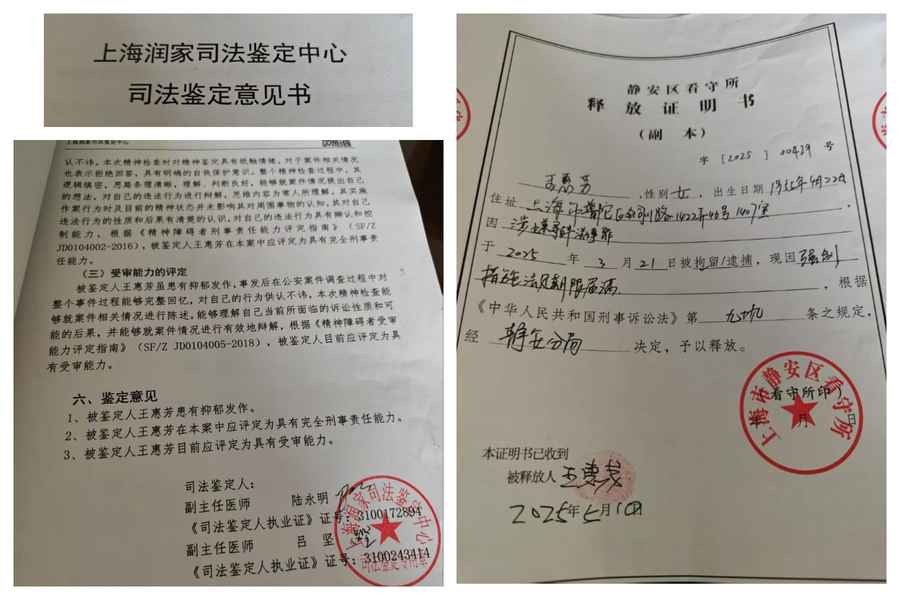 上海润家司法鉴定中心
司法鉴定意见书
上海润家司法鉴定中心
认不讳，本次精神检查时对精神鉴定具有抵触情绪，对于案件相关情况
也表示拒绝回答，具有明确的自我保护意识。整个精神检查过程中，其
逻辑缜密，思路条理清晰，理解、判断良好，能够就案情况提出自己
的想法，对自己的违法行为进行辩解，思维内容为常人所理解。其实施
作案行为时及目前的精神状态并未影响其对周围事物的认知，其对自己
违法行为的性质和后果有清楚的认识，对自己的违法行为具有辨认和控
制能力。根据《精神障碍者刑事责任能力评定指南》（SF/Z
JD0104002-2016），被鉴定人王惠芳在本案中应评定为具有完全刑事责
任能力。
（三）受审能力的评定
被鉴定人王惠芳虽患有抑郁发作，事发后在公安案件调查过程中对
整个事件过程能够完整回忆，对自己的行为供认不讳，本次精神检查能
够就案件相关情况进行陈述，能够理解自己当前所面临的诉讼性质和可
能的后果，并能够就案件情况进行有效地辩解，根据《精神障碍者受审
能力评定指南》（SF/Z JD0104005-2018），被鉴定人目前应评定为具
有受审能力。
六、鉴定意见
1、被鉴定人王惠芳患有抑郁发作。
2、被鉴定人王惠芳在本案中应评定为具有完全刑事责任能力。
3、被鉴定人王惠芳目前应评定为具有受审能力。
司法鉴定人：
副主任医师 陆永明
《司法鉴定人执业证》证号：3100172894
副主任医师 吕 坚
《司法鉴定人执业证》证号：3100243414
上海润家司法鉴定中心
司法鉴定专用章
静安区看守所
释放证明书
（副 本）
字〔2025〕00439 号
王惠芳，性别女，出生日期1955年4月22日
住址上海市普陀区 1422弄40号1407室，
因涉嫌寻衅滋事罪
于2025年3月21日被拘留/逮捕，现因强制
措施法定期限届满，根据
《中华人民共和国刑事诉讼法》第九十九条之规定，
经静安分局决定，予以释放。
看守所印
年 月 日
上海市静安区看守所
本证明书已收到
被释放人 王惠芳
2025年5月10日